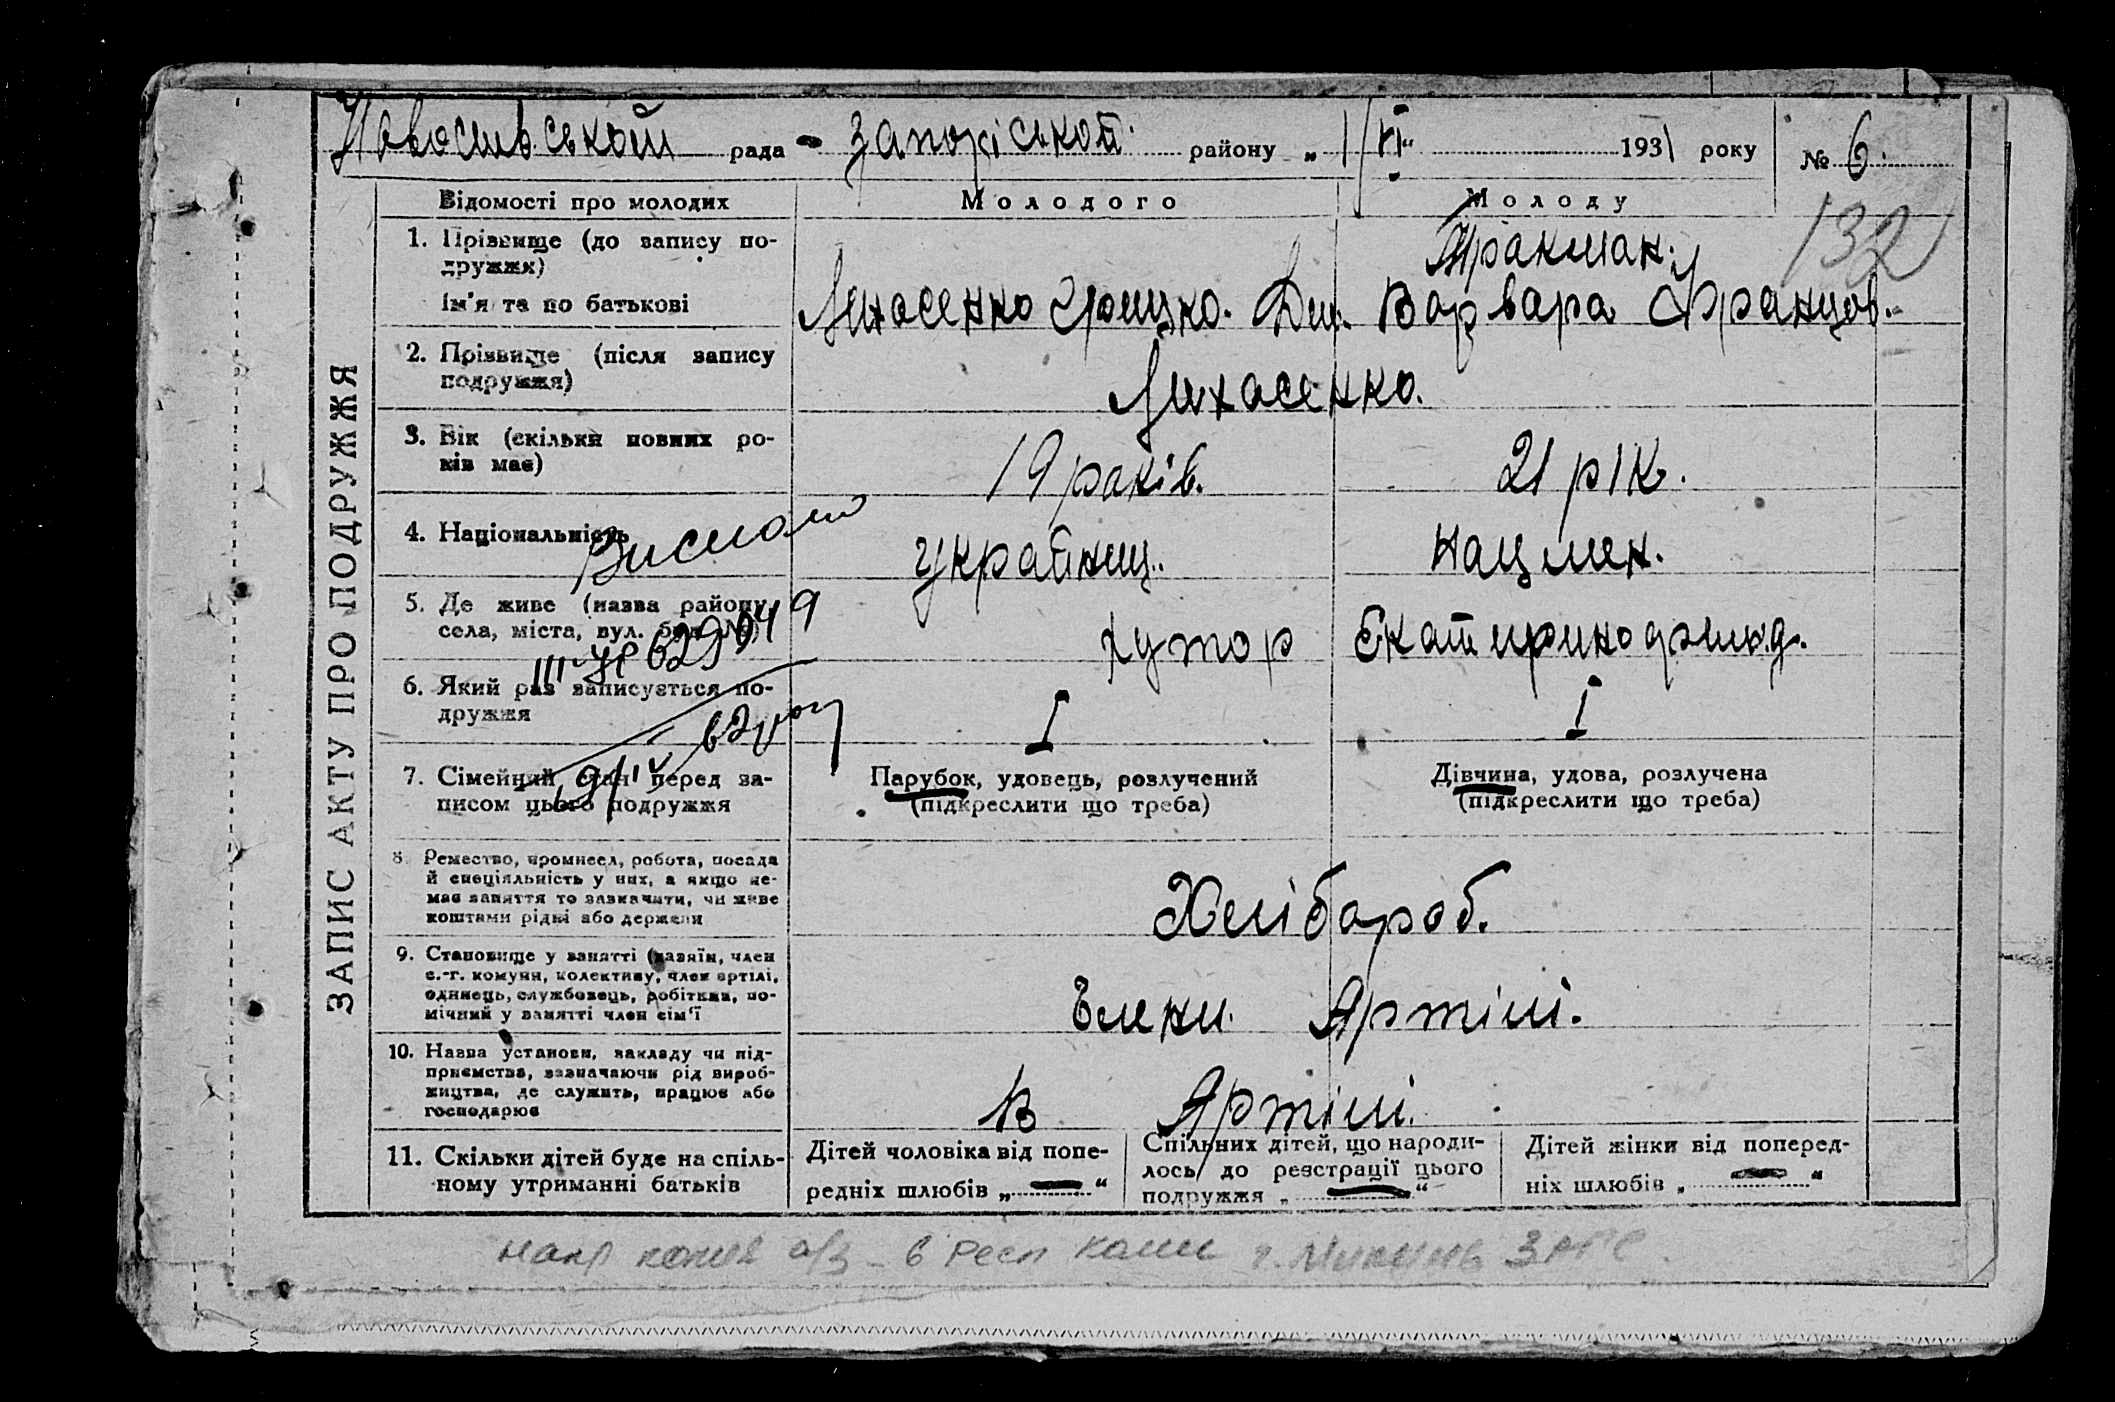 Новосильської рада Запоріської району „1/VI“ 1931 року № 6.
132
ЗАПИС АКТУ ПРО ПОДРУЖЖЯ
Відомості про молодих Молодого Молоду
1. Прізвище (до запису по-
дружжя)
Ім'я та по батькові
Тракман.
Лихосенко Грицко. Дм. Варвара Францов.
2. Прізвище (після запису
подружжя)
Лихосенко.
3. Вік (скільки повних ро-
ків має)
19 років. 21 рік.
4. Національність
Українц. нацмен.
5. Де живе (назва району,
села, міста, вул. буд. №)
хутор Екатиринодриьд.
6. Який раз записується по-
дружжя
I I
7. Сімейний стан перед за-
писом цього подружжя
Парубок, удовець, розлучений
(підкреслити що треба)
Дівчина, удова, розлучена
(підкреслити що треба)
8. Ремество, промисел, робота, посада
й спеціяльність у них, а якщо не-
має заняття то зазначити, чи живе
коштами рідні або держави
Хлібороб.
9. Становище у занятті (хазяїн, член
с.-г. комуни, колективу, член артілі,
одинець, службовець, робітник, по-
мічний у занятті член сім'ї
Члени Артілі.
10. Назва установи, закладу чи під-
приємства, зазначаючи рід вироб-
ництва, де служить, працює або
господарює
В Артілі.
11. Скільки дітей буде на спіль-
ному утриманні батьків
Дітей чоловіка від попе-
редніх шлюбів „—“
Спільних дітей, що народи-
лось до реєстрації цього
подружжя „—“
Дітей жінки від поперед-
ніх шлюбів „—“
III УР 629049
напр копия а/з – в Респ Коми г. Микунь ЗАГС